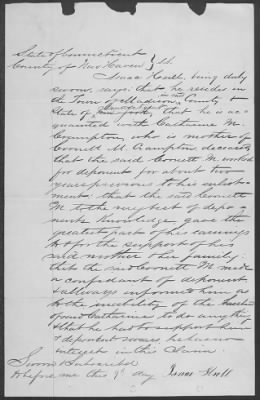 State of Connecticut
County of New Haven } SS.
Isaac Hull, being duly
sworn, says: that he resides in
the Town of Madison, in said County &
State of Connecticut, that he is ac-
quainted with Catharine M.
Crampton, who is mother of
Cornett M. Crampton deceased
that the said Cornett M worked
for deponent for about two
years previous to his enlist-
ment; that the said Cornett
M to the neglect of depo-
nents Knowledge gave the
greatest part of his earnings
to & for the support of his
said mother & her family:
that the said Cornett M made
a confidant of deponent
& always informed him as
to the inability of the husband
of said Catharine to do anything
& that he had to support him
& deponent swears, he has no
interest in this Claim.
Sworn & subscribed
to before me this 9th day Isaac Hull